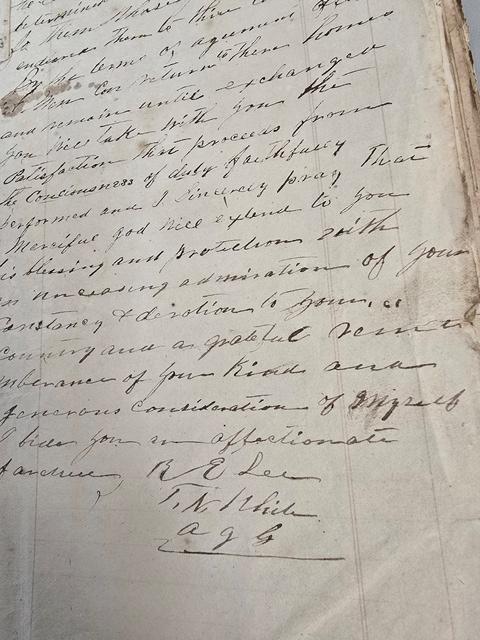 determined
to them whose
endeared them to
By the terms of agreement
men Can return to there homes
and remain until exchanged
you will take with you the
Satisfaction that proceeds from
the Conciousness of duty faithfuley
performed and I Sincerely pray that
Merciful god will extend to you
his blessing and protection with
an unceasing admiration of your
Constancy & devotion to your
Country and a grateful rem
mberance of your Kind and
generous Consideration of Myself
I bide you an affectionate
farewell R E Lee
A G G